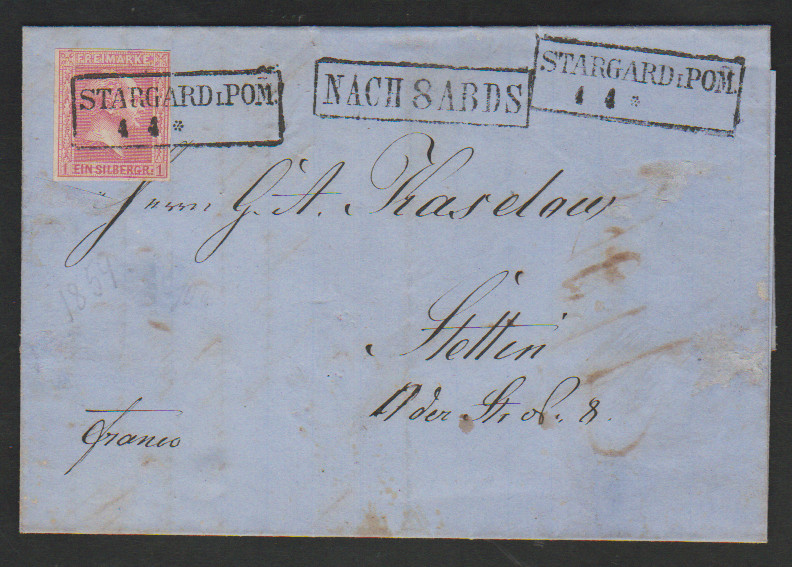 FREIMARKE
STARGARD I. POM.
4 4 *
1 EIN SILBERGR. 1
NACH 8 ABDS
STARGARD I. POM.
4 4 *
Herrn G. A. Kaselow
Stettin
der Str. No. 8.
franco
1859